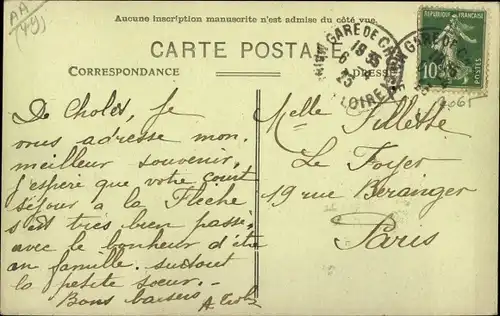 AA
(49)
Aucune inscription manuscrite n'est admise du côté vue.
CARTE POSTALE
CORRESPONDANCE
GARE DE
19 35
6
23
LOIRE
RÉPUBLIQUE FRANÇAISE
10
POSTES
De Cholet, je
vous adresse mon
meilleur souvenir,
j'espère que votre court
séjour à la Flèche
s'est très bien passé,
avec le bonheur d'être
en famille. surtout
la petite sœur.
Bons baisers
Melle
Le Foyer
19 rue Beranger
Paris